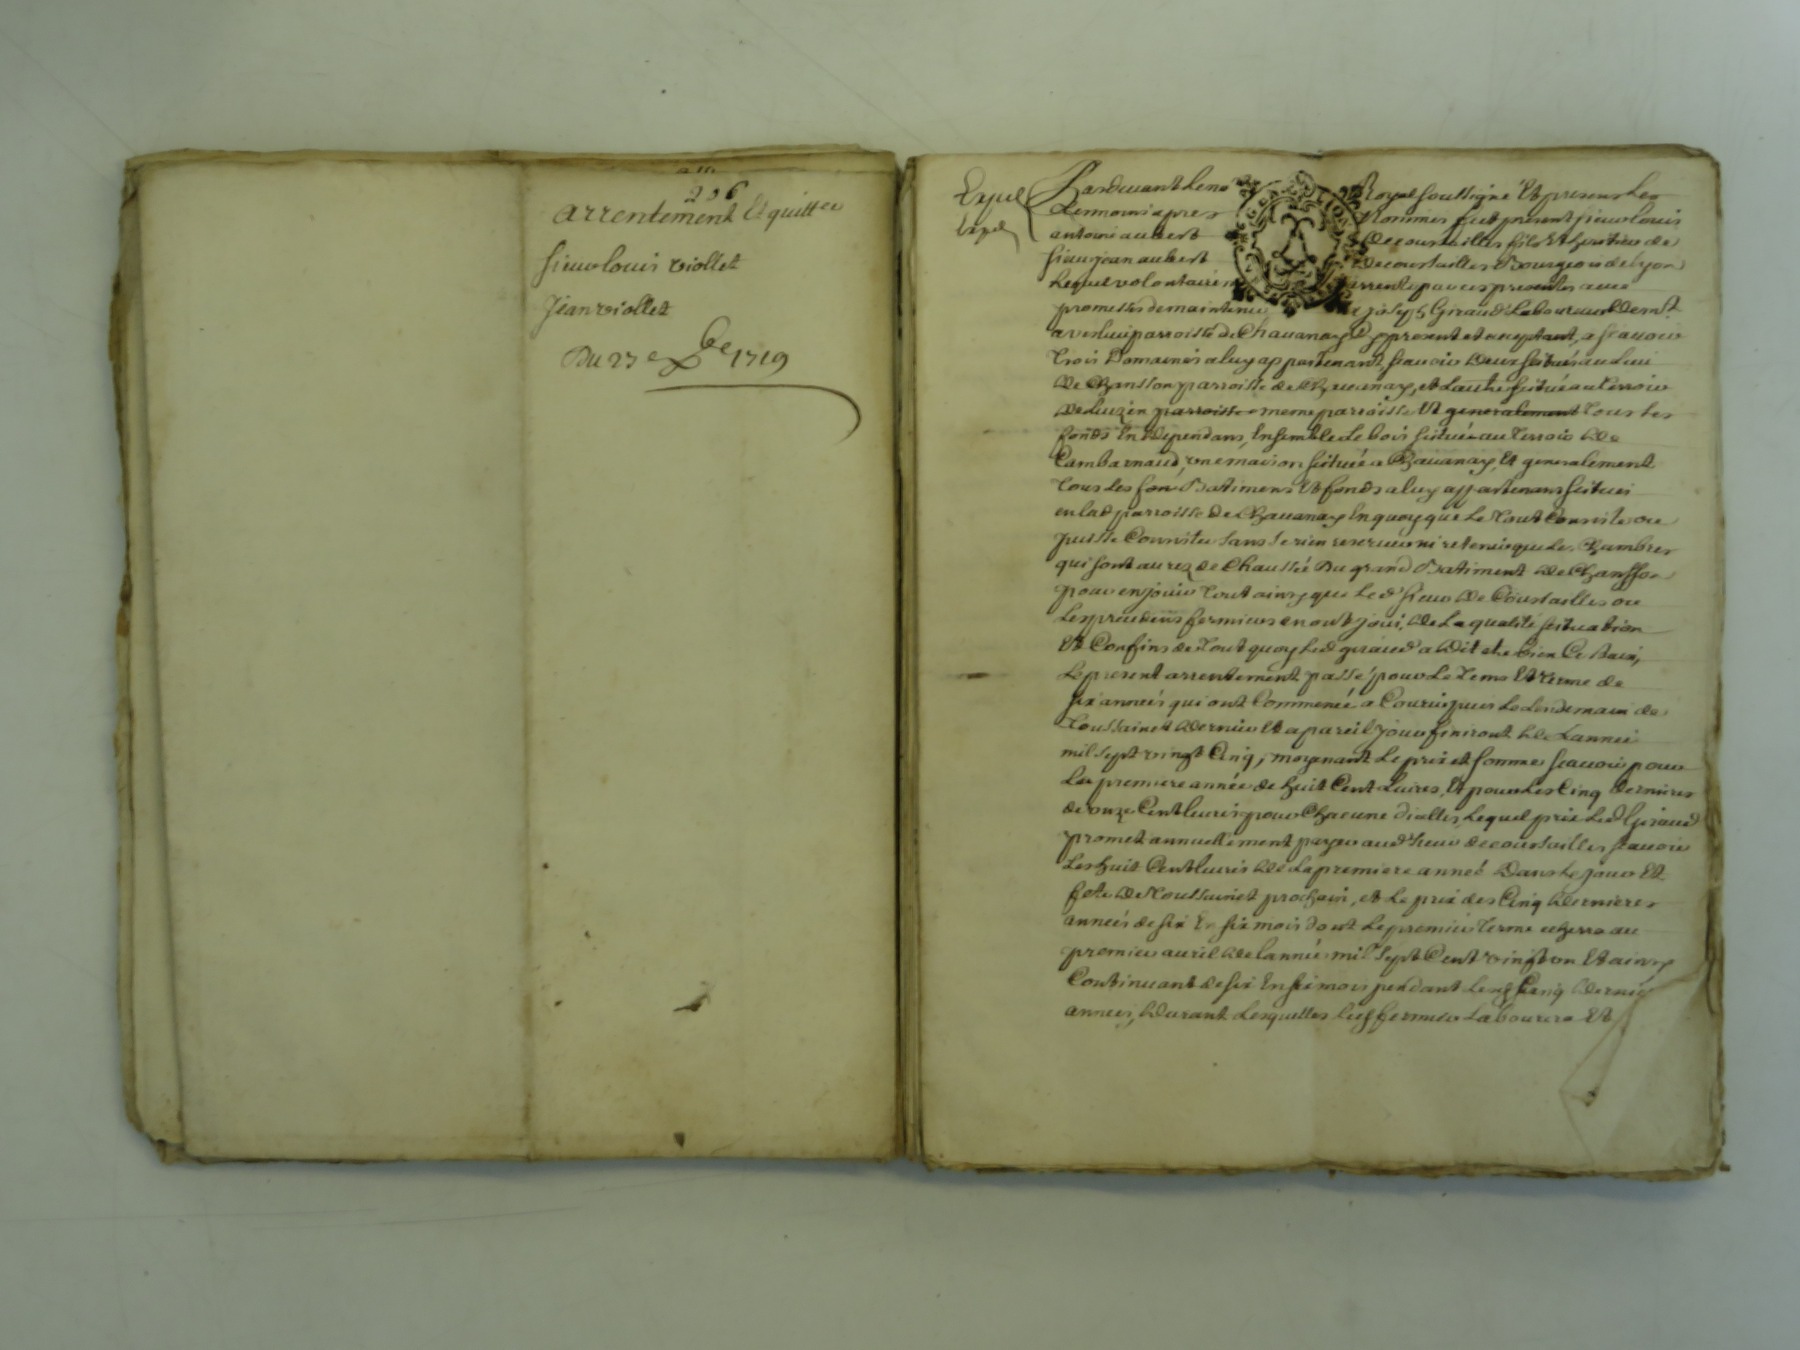 206
arrentement Et quittce
sieur louis viollet
Jean viollet
Du 27e xbe 1719
Expel
Expel
Pardevant le no Royal soussigné Et presens les
tesmoins apres Nommes fut present sieur louis
antoine aubert Decoursailles fils Et heritier de
sieur jean aubert Decoursailles Bourgeois de lyon
Lequel volontairem arrente par ces presentes avec
promesses de maintenue a joseph Giraud Laboureur
parroisse de Chavanay present et acceptant, a scavoir
Trois Domaines a luy appartenant scavoir Deux scitués au lieu
De Chanson parroisse de Chavanay, et Lautre scitué au Terroir
De Luzin parroisse meme parroisse Et generalement Tous les
fonds En dependans, Ensemble Le bois scitué au Terroir De
Cambarnaud, une maison scituée a Chavanay, Et generalement
Tous les fon Batimens Et fonds a luy appartenans scitues
en lad parroisse De Chavanay En quoy que Le Tout Consiste ou
puisse Consister sans se rien reserver ni retenir que Les Chambres
qui sont au rez de Chaussée Du grand Batiment De Chansson
pour en jouir Tout ainsy que Le d' sieur De Coursailles ou
Les precedens fermiers en ont joui, De La qualité scituation
Et Confins de Tout quoy Led giraud a Dit etre bien
Le present arrentement passé pour Le Tems Et Terme de
six années qui ont Commencé a Courir puis Le Lendemain de
Toussainct Dernier Et a pareil jour finiront De Lannée
mil sept vingt Cinq, moyenant Le prix et somme scavoir pour
La premiere année de huit Cent Livres, Et pour Les Cinq Dernieres
de onze Cent livres pour Chacune dicelles, Lequel prix Led Giraud
promet annuellement payer aud sieur decoursailles scavoir
Les huit Cent livres De La premiere anneé Dans Le jour Et
fete De Toussainct prochain, et Le prix des Cinq Dernieres
années de six En six mois dont Le premier Terme echerra au
premier avril De lannée mil sept Cent vingt un Et ainsy
Continuant de six En six mois pendant Lesd Cinq Dernie
années, Durant Lesquelles led fermier Labourera Et